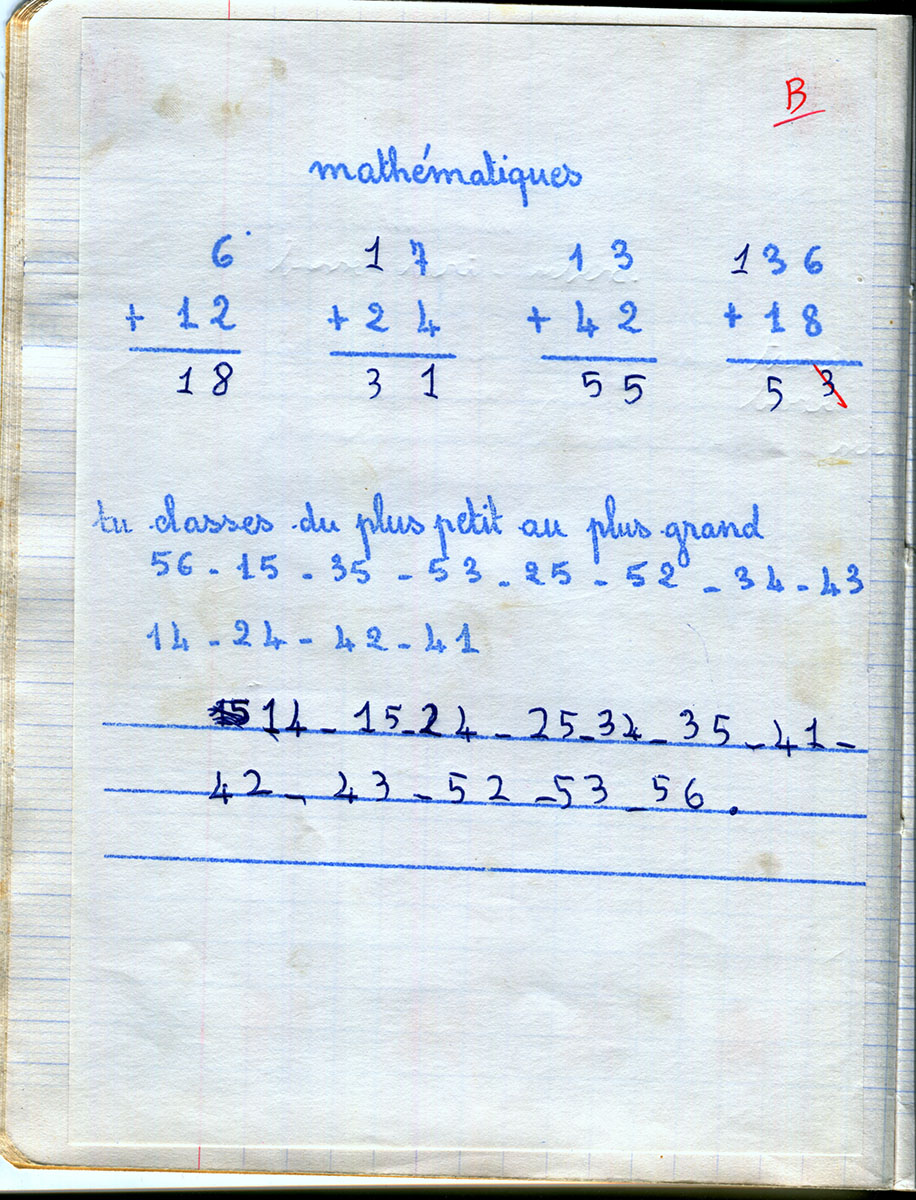 B
mathématiques
6 17 13 136
+ 12 + 24 + 42 + 18
18 31 55 53
tu classes du plus petit au plus grand
56 - 15 - 35 - 53 - 25 - 52 - 34 - 43
14 - 24 - 42 - 41
15 14 - 15 - 24 - 25 - 34 - 35 - 41 -
42 - 43 - 52 - 53 - 56 .